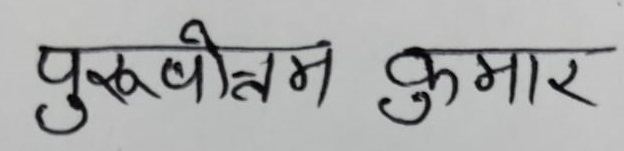 पुरूषोत्तम कुमार